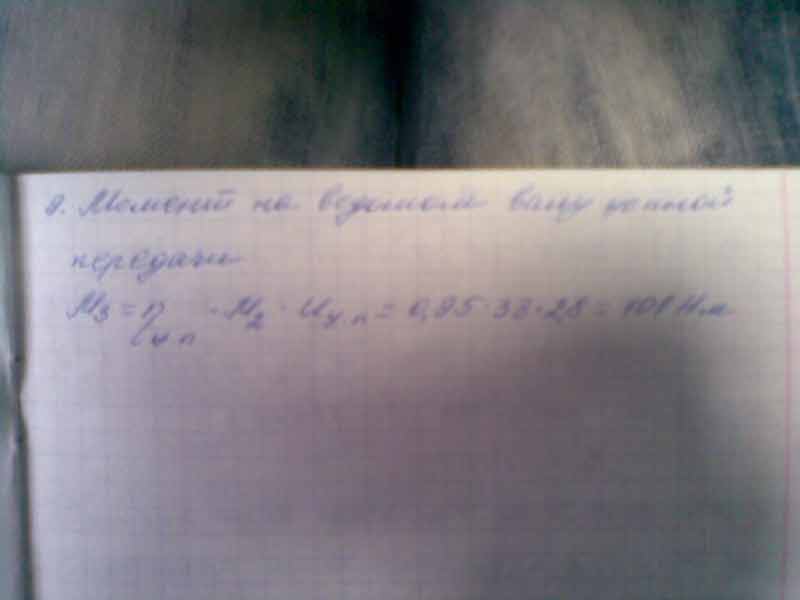 9. Момент на ведомом валу цепной
передачи
M₃ = η ц.п · M₂ · Uц.п = 0,95 · 38 · 2,8 = 101 Нм